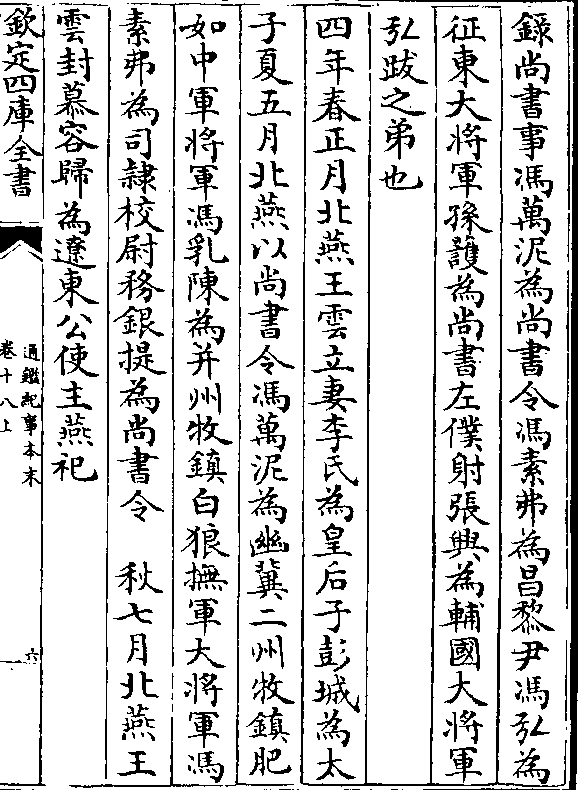 錄尚書事馮萬泥為尚書令馮素弗為昌黎尹馮弘為
征東大將軍孫護為尚書左僕射張興為輔國大將軍
弘跋之弟也
四年春正月北燕王雲立妻李氏為皇后子彭城為太
子夏五月北燕以尚書令馮萬泥為幽冀二州牧鎮肥
如中軍將軍馮乳陳為并州牧鎮白狼撫軍大將軍馮
素弗為司隸校尉務銀提為尚書令　秋七月北燕王
雲封慕容歸為遼東公使主燕祀
欽定四庫全書
通鑑紀事本末
卷十八上
六